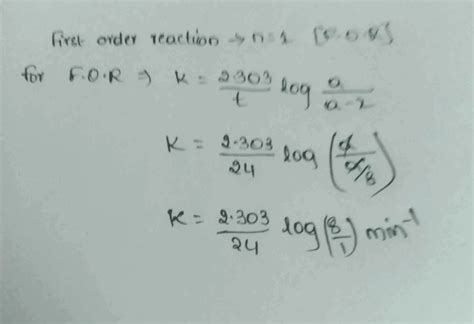 First order reaction → n=1 [F.O.R]
for F.O.R ⇒ K = 2.303/t log a/a-x
K = 2.303/24 log (a/a/8)
K = 2.303/24 log(8/1) min⁻¹